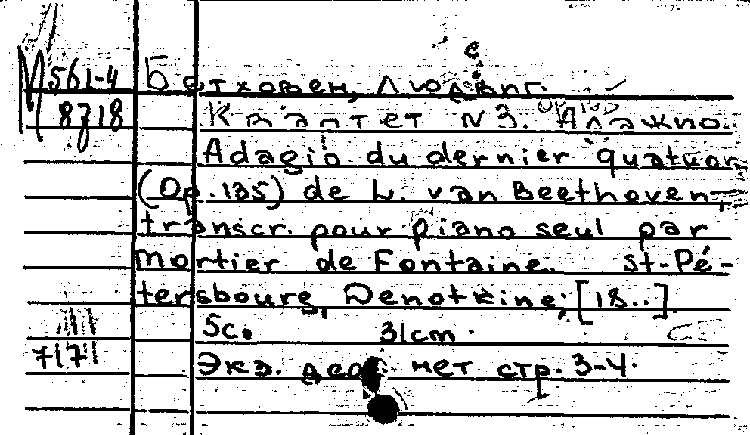 М 561-4
8718
Бетховен, Людвиг.
Квартет N 3. Адажио.
Adagio du dernier quatuor
(Op. 135) de L. van Beethoven,
transcr. pour piano seul par
Mortier de Fontaine. St-Pé-
tersbourg, Denotkine, [18..]
5 с. 31 cm.
7171
Экз. деф. нет стр. 3-4.